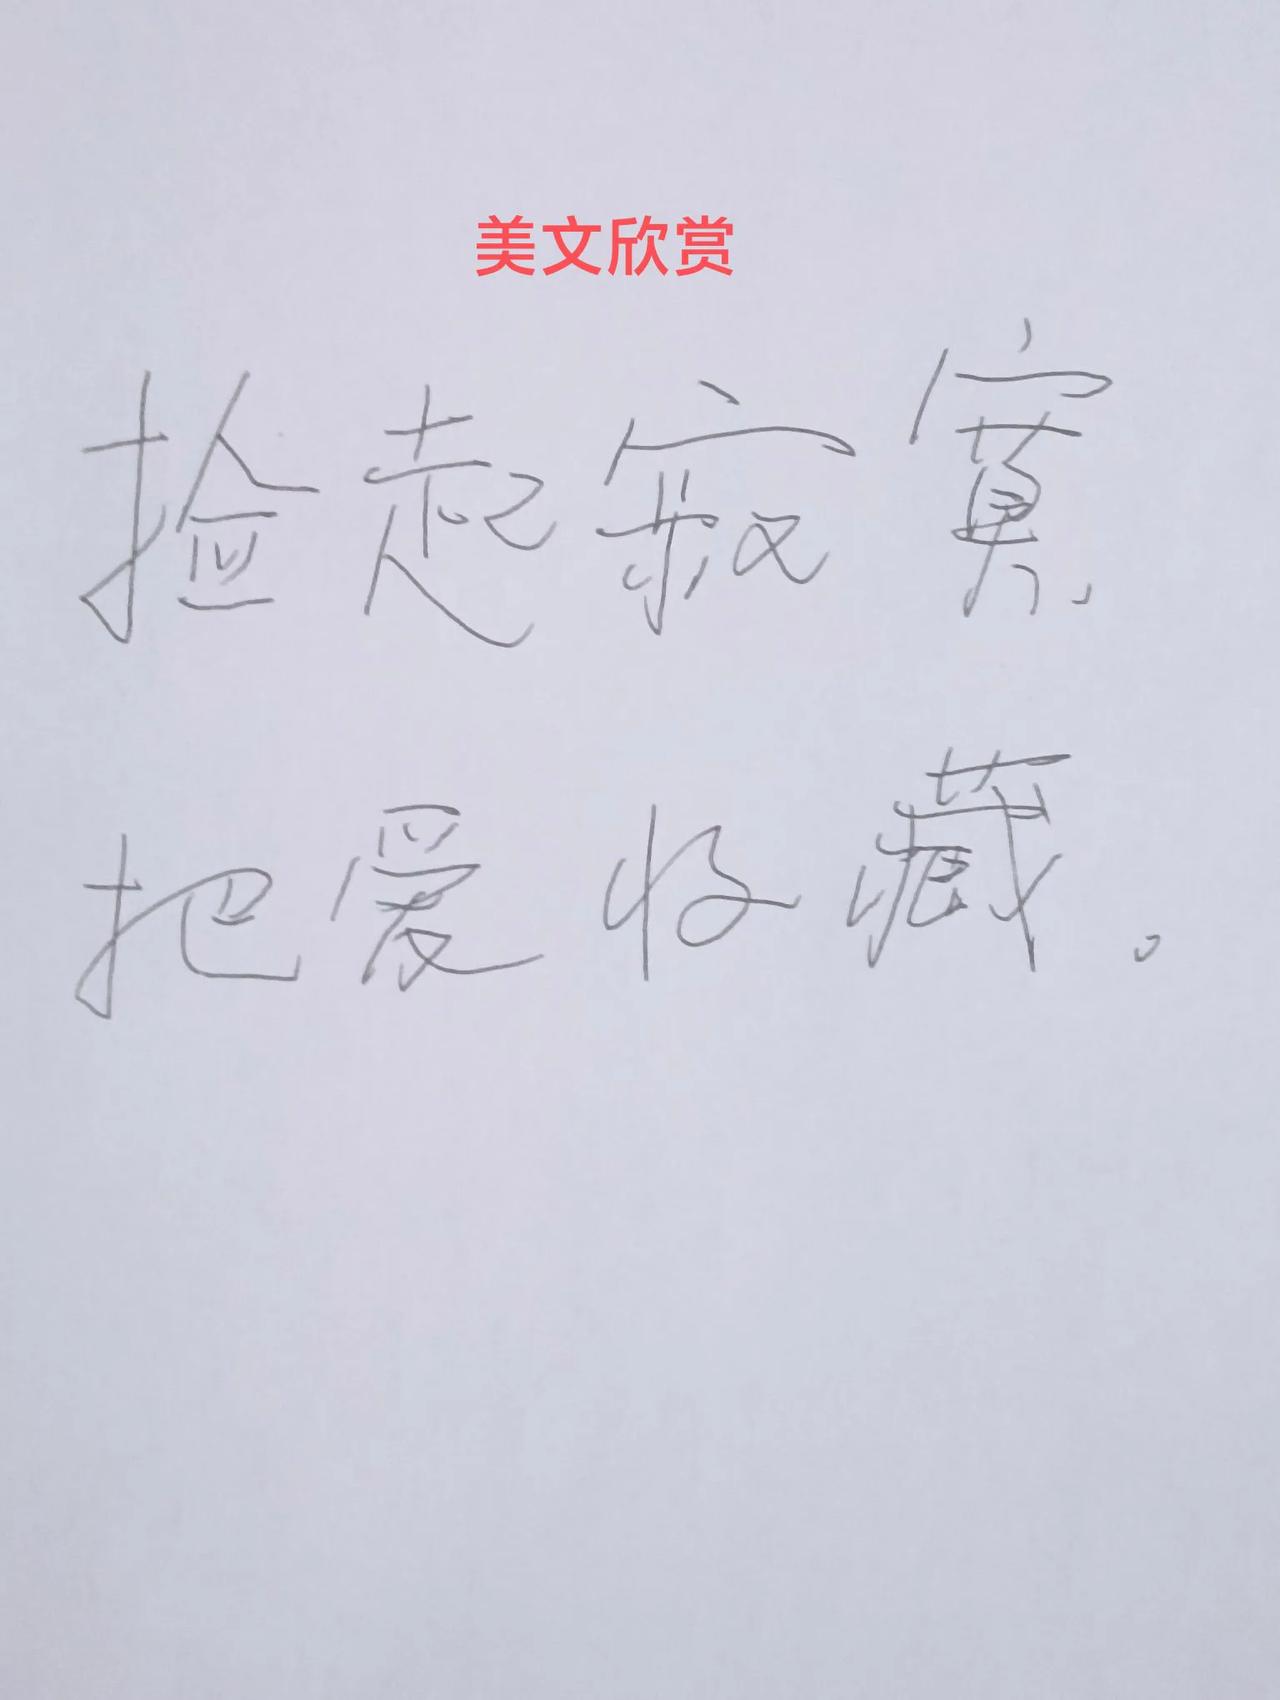 美文欣赏
捡起寂寞
把爱收藏。